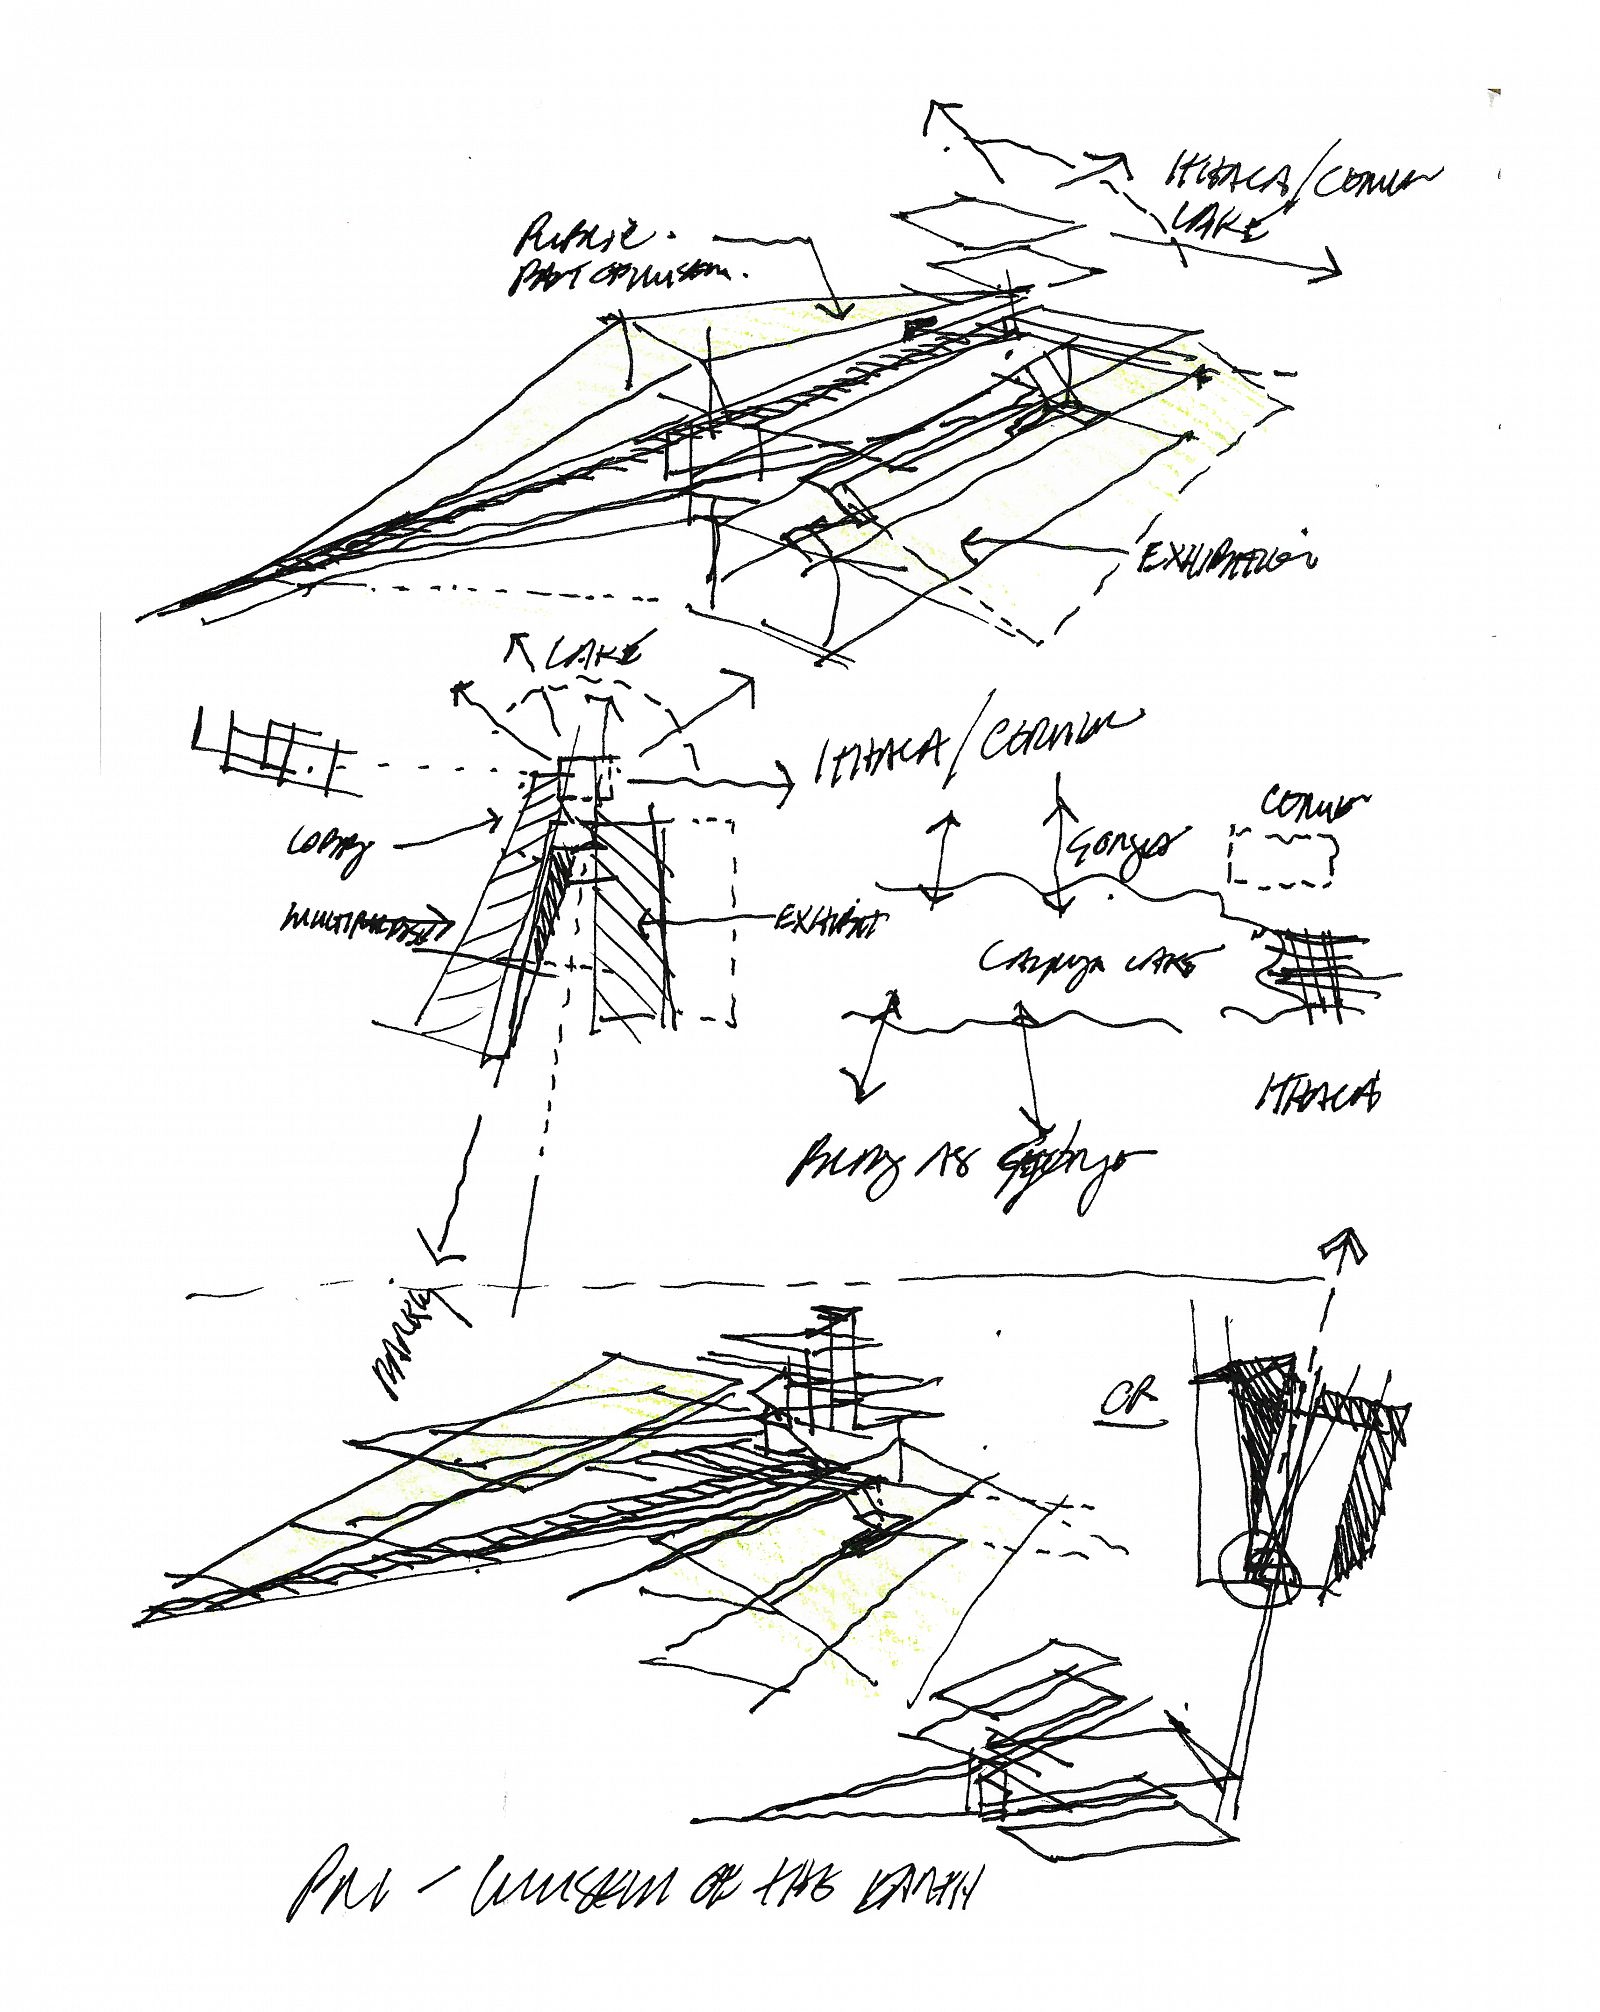 ITHACA/CORNELL
LAKE
PUBLIC
PART OF MUSEUM.
EXHIBITION
LAKE
ITHACA/CORNELL
LOBBY
CORNELL
GORGES
MULTIPURPOSE
EXHIBIT
CAYUGA LAKE
ITHACA
BLDG AS GORGE
PARKING
CR
PRI - MUSEUM OF THE EARTH